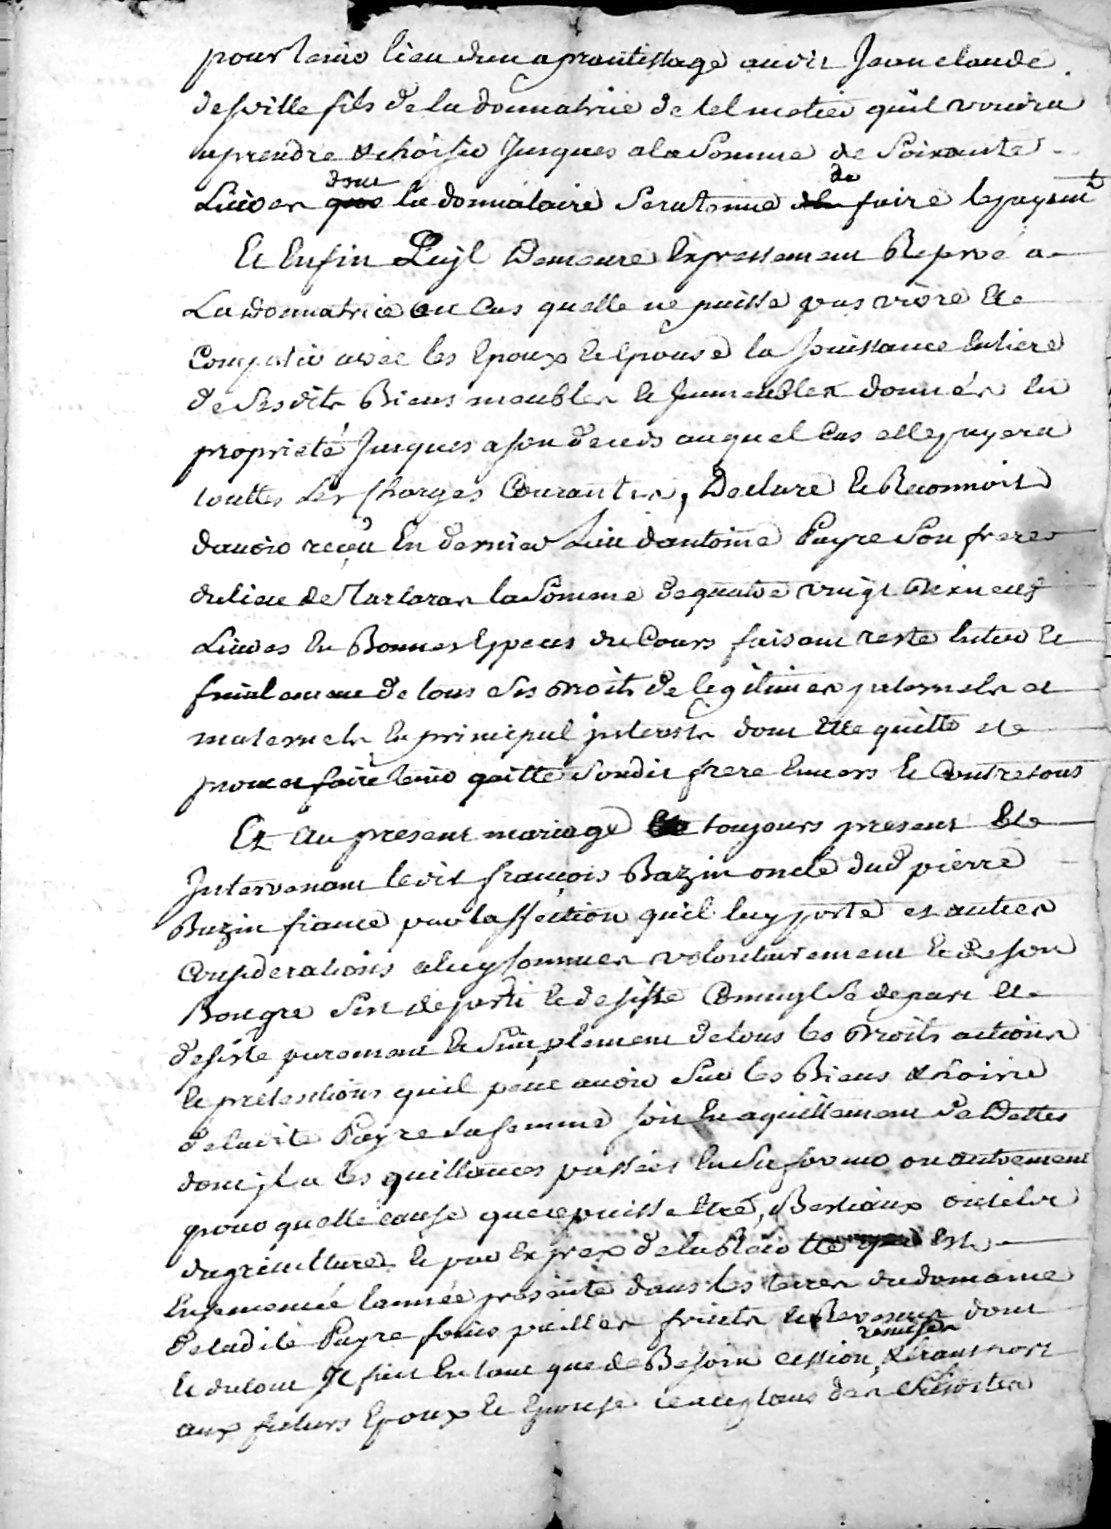 pour tenir lieu dun aprantissage audit Jean claude
deville fils de la donnatrice de tel metier quil voudra
aprendre & choisir Jusques a la Somme de Soixante
Livres dont la donnataire Sera tenue de faire le payemt
Et Enfin quil Demeure Expressement Reservé a
La donnatrice au Cas quelle ne puisse pas vivre Et
Compatir avec les Epoux & Epouse la Jouissance Entiere
de Sesdits Biens meubles & Jmmeubles donnés En
proprieté Jusques a son deceds auquel Cas elle payera
touttes Les Charges Courantes, Declare & Reconnoit
davoir reçeu En dernier Lieu dantoine Payre Son frere
du lieu de Tartaras la Somme de quatre vingt dixneuf
Livres En Bonnes Especes du Cours faisant reste Entier &
finalement de tous Ses Droits de legitimes paternels et
maternels En principal jnterests dont Elle quitte et
promet faire tenir quitte Sondit frere Envers & Contre tous
Et Au present mariage toujours present Et
Jntervenant ledit françois Bazin oncle dud pierre
Bazin fiancé par laffection quil luy porte et autres
Considerations a luy connues volontairement & de son
Bongre Sest departi & desisté Comme jl Se depart Et
desiste purement & Simplement de tous les Droits actions
& pretentions quil peut avoir Sur les Biens & hoirie
de ladite Payre Sa femme soit En aquittement de Dettes
dont jl a les quittances passées En Sa faveur ou autrement
pour quelle cause que ce puisse Etre, Bestiaux outils
dagriculture & par Exprex de la Recotte Est
Ensemencée lannée presente dans les terres du domaine
de ladite Payre foins pailles fruits & Revenus dont
& du tout Jl fait En tant que de Besoin cession, remises & transport
aux futurs Epoux & Epouse